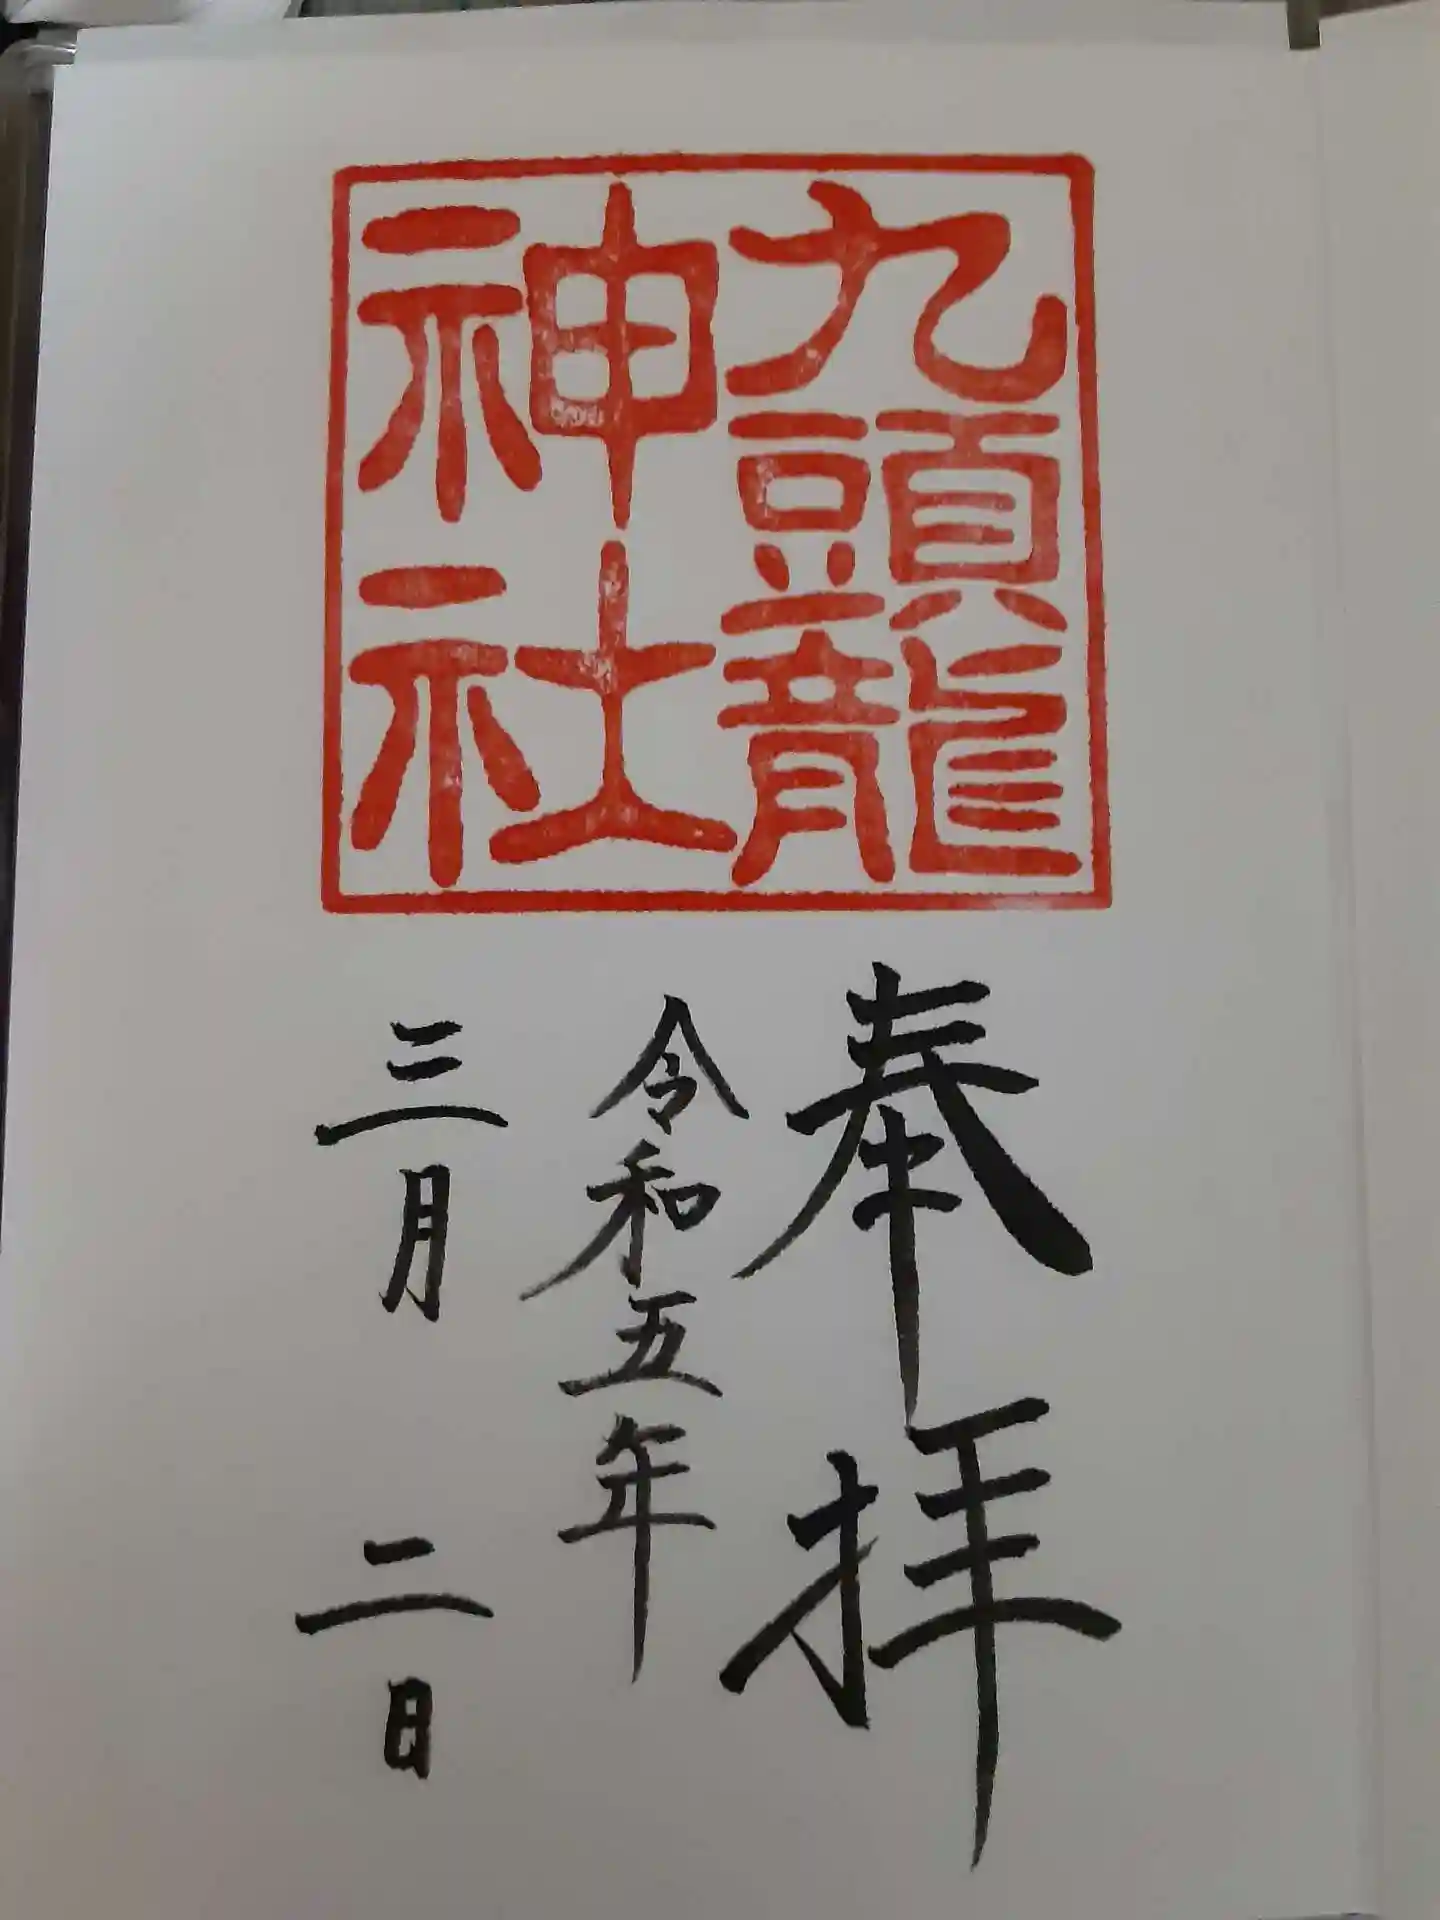 九頭龍
神社
奉拝
令和五年
三月二日